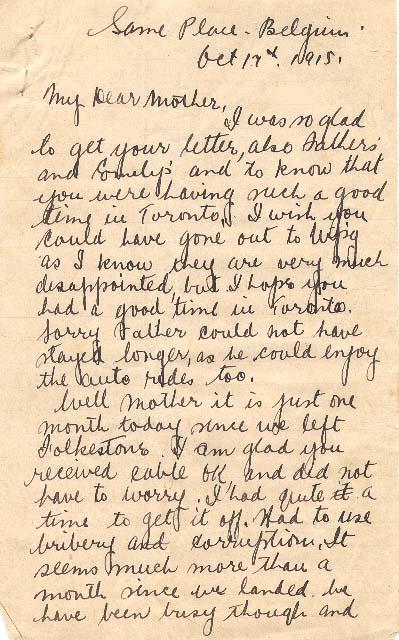 Same Place - Belgium.
Oct 17th, 1915.
My Dear Mother,
I was so glad
to get your letter, also Fathers
and Emily's and to know that
you were having such a good
time in Toronto. I wish you
could have gone out to Wpg
as I know they are very much
disappointed, but I hope you
had a good time in Toronto.
Sorry Father could not have
stayed longer, as he could enjoy
the auto rides too.
Well Mother it is just one
month today since we left
Folkestone. I am glad you
received cable OK, and did not
have to worry. I had quite a
time to get it off. Had to use
bribery and corruption. It
seems much more than a
month since we landed. We
have been busy though and